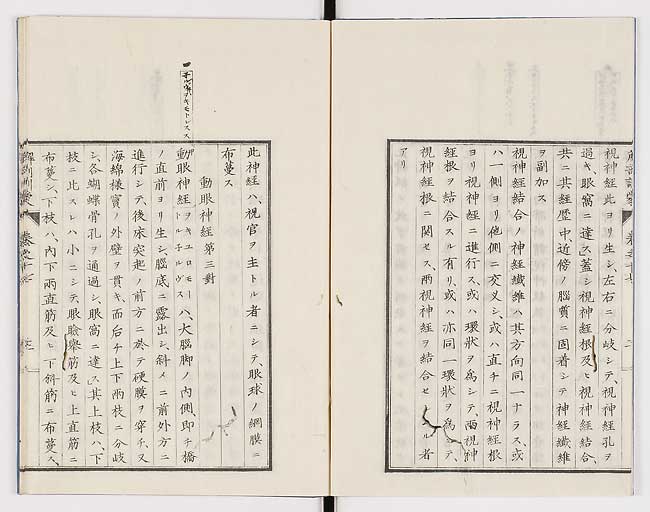 視神経此ヨリ生シ、左右ニ分岐シテ、視神経孔ヲ
過キ、眼窩ニ達ス、蓋シ視神経根及ヒ視神経結合、
共ニ其経歴中、近傍ノ脳質ニ固着シテ神経繊維
ヲ副加ス
視神経結合ノ神経繊維ハ其方向同一ナラス、或
ハ一側ヨリ他側ニ交叉シ、或ハ直チニ視神経根
ヨリ視神経ニ進行ス、或ハ環状ヲ為シテ、両視神
経根ヲ結合スル有リ、或ハ亦同一環状ヲ為シテ、
視神経根ニ関セス、両視神経ヲ結合セ ル者
アリ
此神経ハ、視官ヲ主トル者ニシテ、眼球ノ網膜ニ
布蔓ス
動眼神経第三對
動眼神経ヲキュロモートルチルヴスハ、大脳脚ノ内側、即チ橋
ノ直前ヨリ生シ、脳底ニ露出シ、斜メニ前外方ニ
進行シテ、後床突起ノ前方ニ於テ硬膜ヲ穿チ、又
海綿様竇ノ外壁ヲ貫キ、而后チ上下両枝ニ分岐
シ、各蝴蝶骨孔ヲ通過シ、眼窩ニ達ス、其上枝ハ、下
枝ニ比スレハ小ニシテ、眼瞼擧筋及ヒ上直筋ニ
布蔓シ、下枝ハ、内下両直筋及ヒ下斜筋ニ布蔓ス、